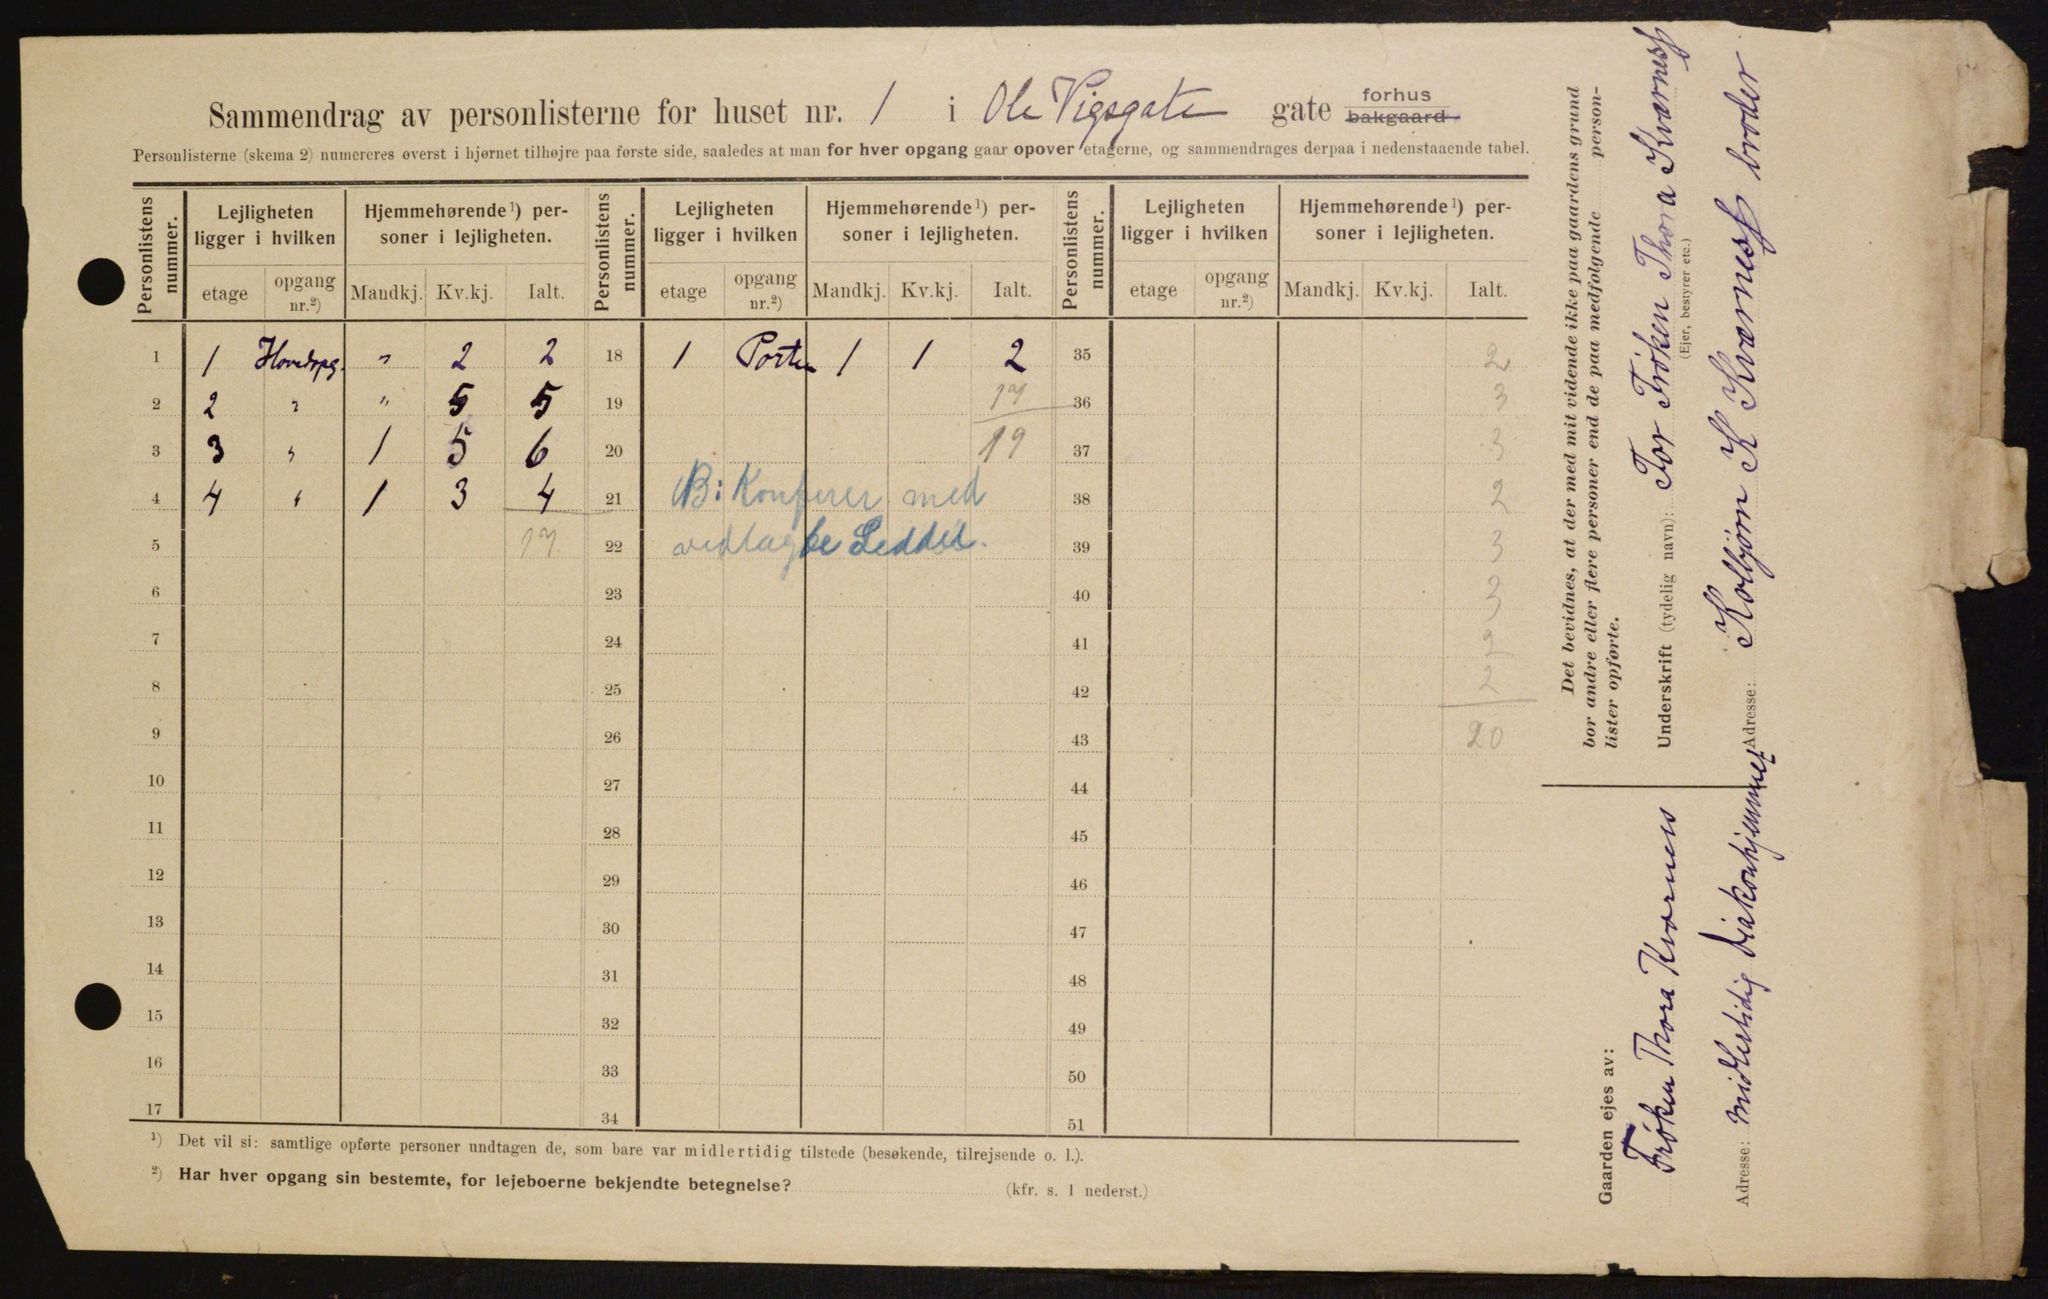 Sammendrag av personlisterne for huset nr. 1 i Ole Vigsgate gate forhus bakgaard
Personlisterne (skema 2) numereres øverst i hjørnet tilhøjre paa første side, saaledes at man for hver opgang gaar opover etagerne, og sammendrages derpaa i nedenstaaende tabel.
Personlistens nummer. Lejligheten ligger i hvilken Hjemmehørende ¹) personer i lejligheten. Personlistens nummer. Lejligheten ligger i hvilken Hjemmehørende ¹) personer i lejligheten. Personlistens nummer. Lejligheten ligger i hvilken Hjemmehørende ¹) personer i lejligheten.
etage opgang nr.²) Mandkj. Kv.kj. Ialt. etage opgang nr.²) Mandkj. Kv.kj. Ialt. etage opgang nr.²) Mandkj. Kv.kj. Ialt.
1 1 Hovedopg. " 2 2 18 1 Porten 1 1 2 35 2
2 2 " " 5 5 19 17 36 3
3 3 " 1 5 6 20 19 37 3
4 4 " 1 3 4 21 NB: Konferer med 38 2
5 17 22 vedlagte Seddel. 39 3
6 23 40 3
7 24 41 2
8 25 42 2
9 26 43 20
10 27 44
11 28 45
12 29 46
13 30 47
14 31 48
15 32 49
16 33 50
17 34 51
¹) Det vil si: samtlige opførte personer undtagen de, som bare var midlertidig tilstede (besøkende, tilrejsende o. l.).
²) Har hver opgang sin bestemte, for lejeboerne bekjendte betegnelse? (kfr. s. 1 nederst.)
Det bevidnes, at der med mit vidende ikke paa gaardens grund
bor andre eller flere personer end de paa medfølgende person-
lister opførte.
Underskrift (tydelig navn): For Frøken Thora Kværness
(Ejer, bestyrer etc.)
Adresse: Kolbjørn K Kværness broder
Gaarden ejes av:
Frøken Thora Kværness
Adresse: midlertidig Diakonhjemmet